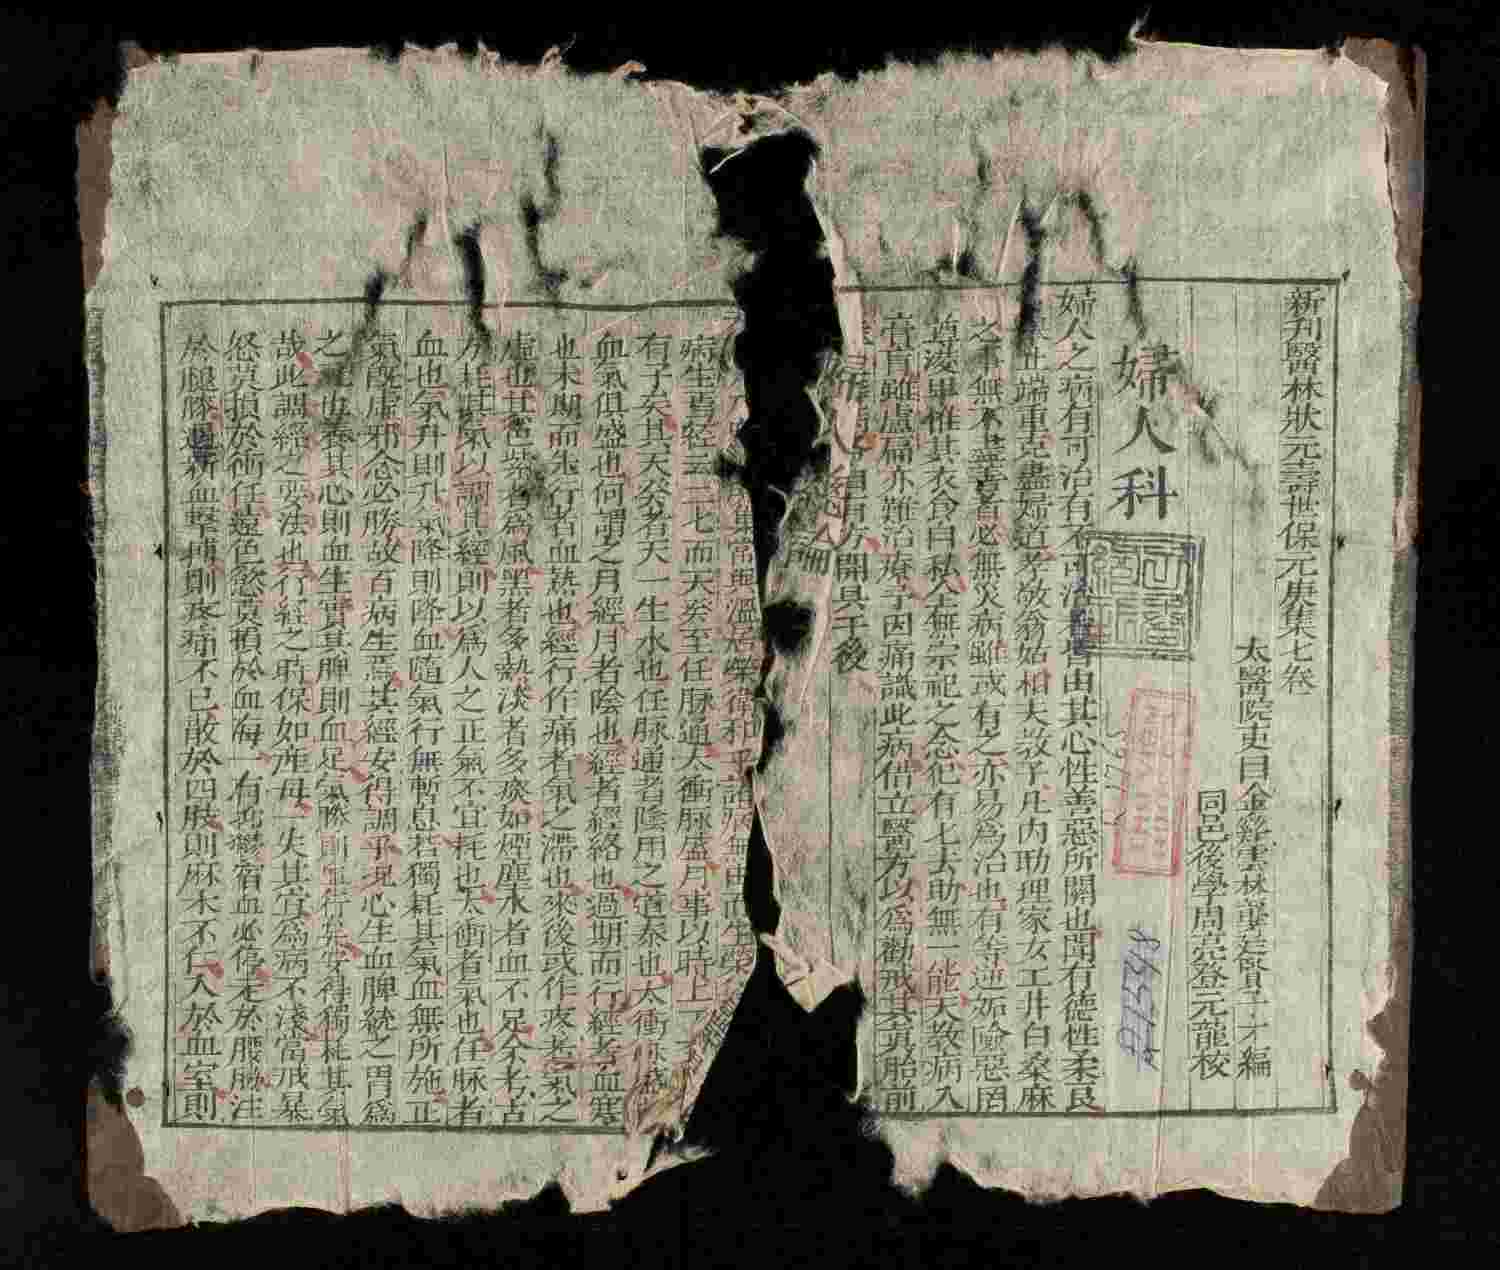 新刋醫林狀元壽世保元庚集七卷
太醫院吏目金谿雲林龔廷賢子才編
同邑後學周亮登元龍校
婦人科
婦人之病有可治有不可治皆由其心性善惡所關也聞有德性柔良
端重克盡婦道孝敬翁姑相夫教子凡內助理家女工井臼桑麻
之事無不盡善者必無災病雖或有之亦易為治也有等逆妬險惡罔
尊凌卑惟其衣食自私全無宗祀之念犯有七去助無一能天教病入
膏肓雖盧扁亦難治療予因痛識此病借立醫方以為勸戒其真胎前
開具于後
婦人 論
常與溫居榮衛和平諸病無由而生榮
病生焉經云二七而天癸至任脉通太衝脉盛月事以時下
有子矣其天癸者天一生水也任脉通者陰用之道泰也太衝脉盛
血氣俱盛也何謂之月經月者陰也經者經絡也過期而行經者血寒
也未期而先行者血熱也經行作痛者氣之滯也來後或作疼者氣之
虛也其色紫者為風黑者多熱淡者多痰如煙塵水者血不足本者古
耗其氣以調其經則以為人之正氣不宜耗也太衝者氣也任脉者
血也氣升則升氣降則降血隨氣行無暫息若獨耗其氣血無所施正
氣既虛邪念必勝故百病生焉其經安得調乎況心生血脾統之胃為
之元也養其心則血生實其脾則血足氣勝則血行安得獨耗其氣
哉此調經之要法也行經之時保如產母一失其宜為病不淺當戒暴
怒莫損於衝任遠色慾莫損於血海一有抑鬱宿血必停走於腰脇注
於腿膝遇新血擊搏則疼痛不已散於四肢則麻木不仁入於血室則